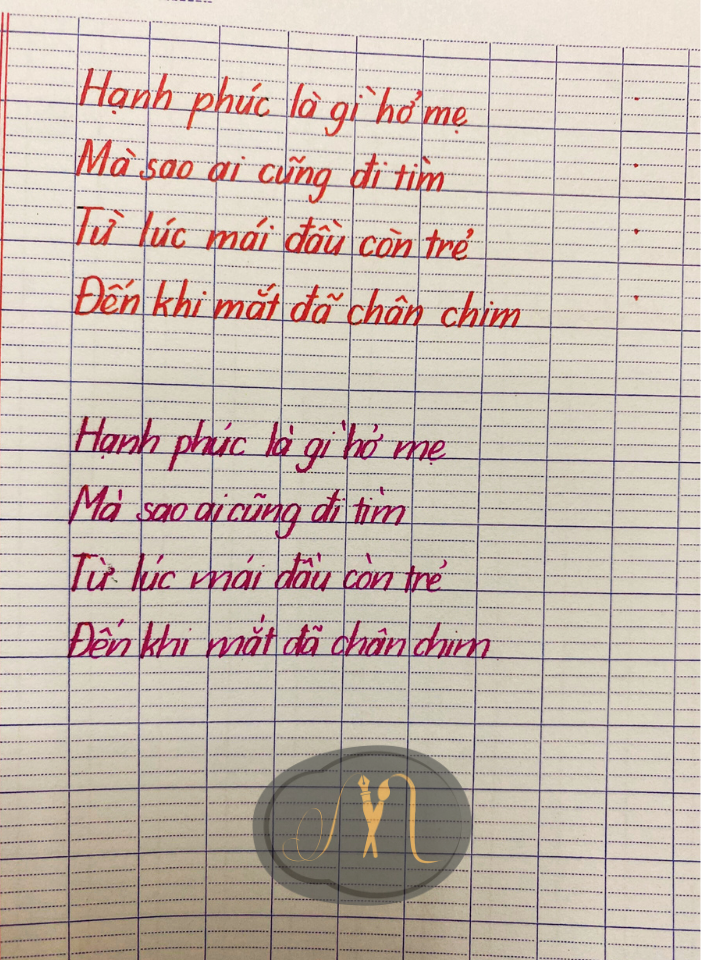 Hạnh phúc là gì hở mẹ
Mà sao ai cũng đi tìm
Từ lúc mái đầu còn trẻ
Đến khi mắt đã chân chim
Hạnh phúc là gì hở mẹ
Mà sao ai cũng đi tìm
Từ lúc mái đầu còn trẻ
Đến khi mắt đã chân chim